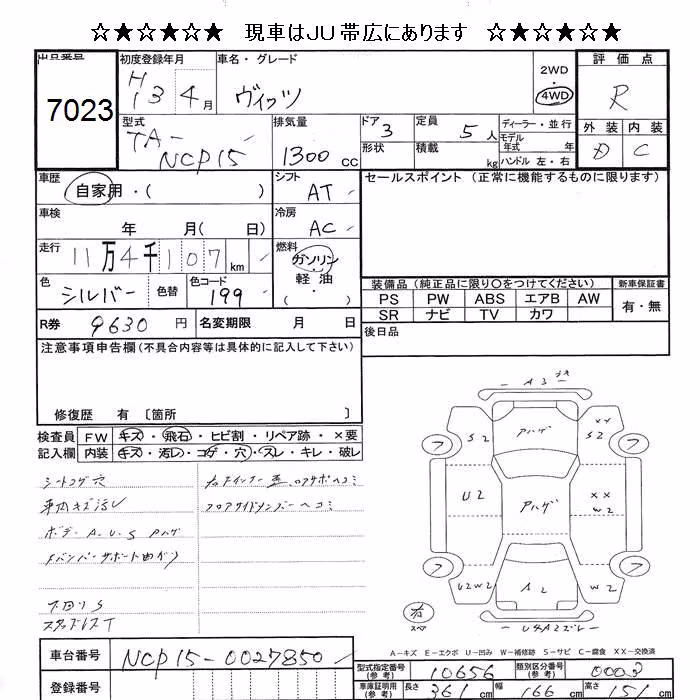 ☆★☆★☆★☆ 現車はJU帯広にあります ☆★☆★☆★☆
出品番号 初度登録年月 車名・グレード 2WD 評価点
7023 H13 4月 ヴィッツ 4WD R
型式 排気量 ドア 定員 ディーラー・並行 外装 内装
TA-NCP15 1300cc 3 5人 モデル年式 年 D C
形状 積載 kg ハンドル 左・右
車歴 シフト セールスポイント (正常に機能するものに限ります)
自家用・( ) AT
車検 冷房
年 月( 日) AC
走行 燃料
11万4千107km ガソリン
軽油
( ・ )
色 色替 色コード
シルバー 199
装備品 (純正品に限り○をつけてください) 新車保証書
PS PW ABS エアB AW 有・無
SR ナビ TV カワ
R券 9630円 名変期限 月 日 後日品
注意事項申告欄(不具合内容等は具体的に記入して下さい)
修復歴 有 〔箇所 〕
検査員 FW キズ・飛石・ヒビ割・リペア跡・×要
記入欄 内装 キズ・汚レ・コゲ・穴・スレ・キレ・破レ
シートコゲ穴
車内キズ汚レ フロアサイドメンバーヘコミ
ボデーA.U.Sハゲ
下回りS
スタッドレスT
A3
S2 アハゲ ×× S2
フ フ
U2 アハゲ ×× W2
フ フ
U2W2 A2 W2
右 スペア U4A2ズレ
A-キズ E-エクボ U-凹み W-補修跡 S-サビ C-腐食 XX-交換済
車台番号 NCP15-0027850
登録番号
型式指定番号(参考) 10656 類別区分番号(参考) 0003
車庫証明用(参考) 長さ 361cm 幅 166cm 高さ 151cm